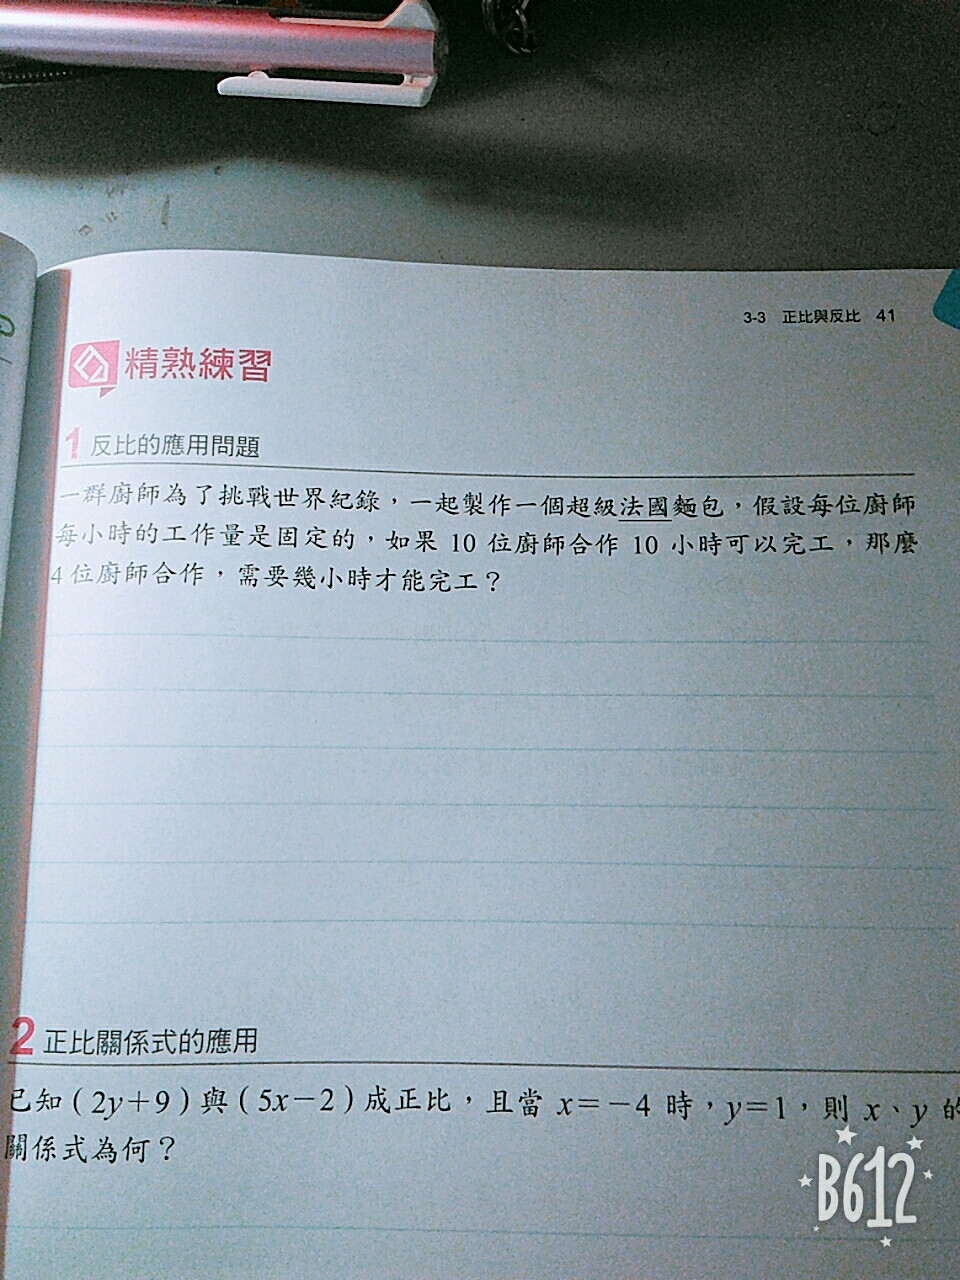 3-3 正比與反比 41
精熟練習
1 反比的應用問題
一群廚師為了挑戰世界紀錄，一起製作一個超級法國麵包，假設每位廚師
每小時的工作量是固定的，如果 10 位廚師合作 10 小時可以完工，那麼
4 位廚師合作，需要幾小時才能完工？
2 正比關係式的應用
已知（2y＋9）與（5x－2）成正比，且當 x＝－4 時，y＝1，則 x、y 的
關係式為何？
B612